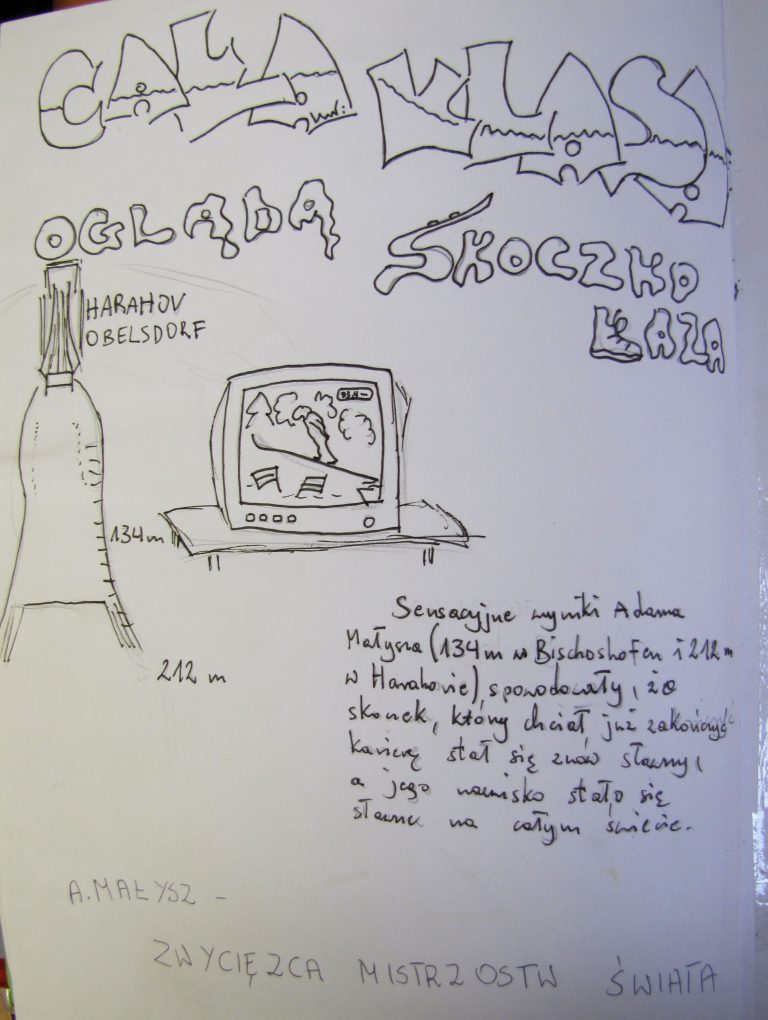 CAŁA KLASA
OGLĄDA SKOCZKO
ŁAZA
HARAHOV
OBELSDORF
134 m
212 m
Sensacyjne wyniki Adama
Małysza (134 m w Bischoshofen i 212 m
w Harahovie), spowodowały, że
skoczek, który chciał już zakończyć
karierę stał się znów sławny,
a jego nazwisko stało się
sławne na całym świecie.
A. MAŁYSZ -
ZWYCIĘZCA MISTRZOSTW ŚWIATA